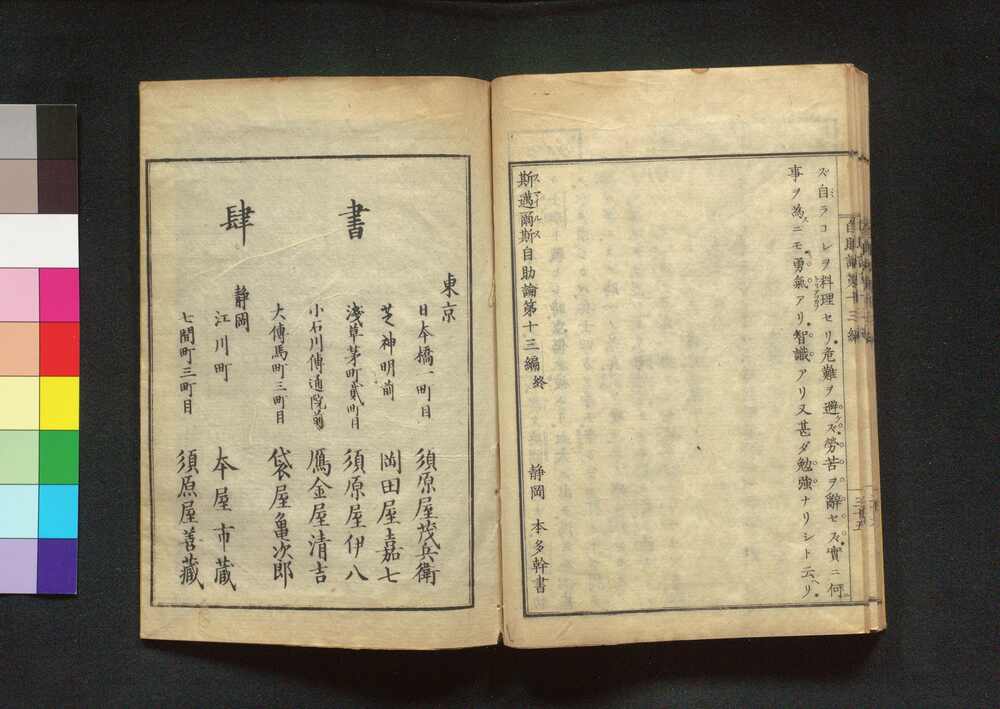 ズ自ラコレヲ料理セリ危難ヲ避ズ勞苦ヲ辭セズ實ニ何
事ヲ為ニモ勇氣アリ智識アリ又甚ダ勉強ナリシト云ヘリ
斯邁爾斯自助論第十三編終
静岡 本多幹書
書肆
東京
日本橋一町目 須原屋茂兵衛
芝神明前 岡田屋嘉七
淺草茅町貳町目 須原屋伊八
小石川傳通院前 鴈金屋清吉
大傳馬町三町目 袋屋亀次郎
静岡
江川町 本屋市蔵
七間町三町目 須原屋善蔵